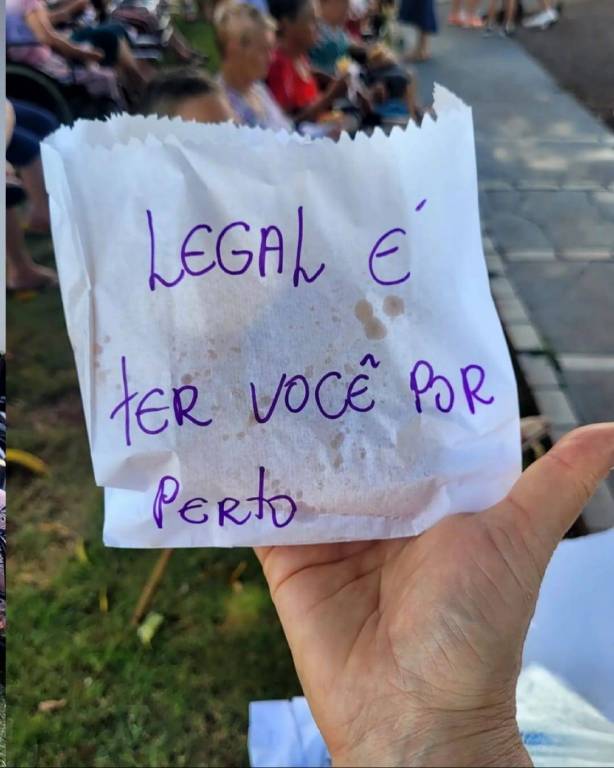 LEGAL É
tER VOCÊ POR
PERtO